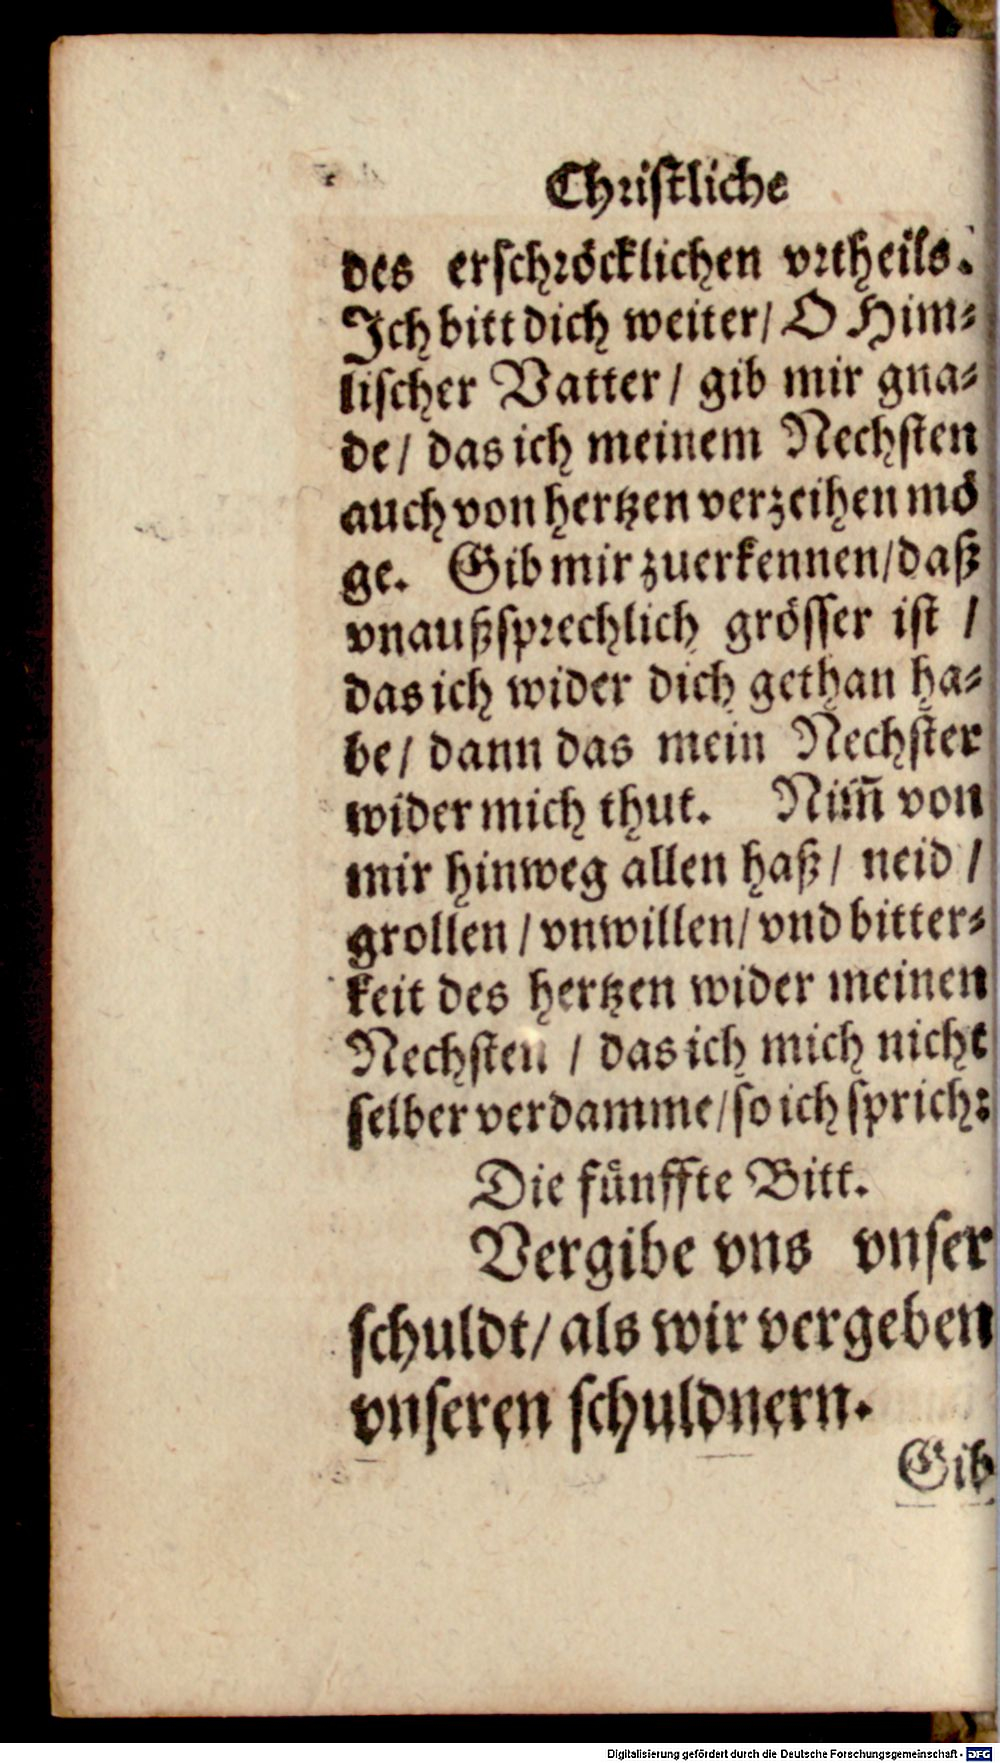 Christliche
des erschröcklichen vrtheils.
Ich bitt dich weiter/ O Him-
lischer Vatter/ gib mir gna-
de/ das ich meinem Nechsten
auch von hertzen verzeihen mö
ge. Gib mir zuerkennen/daß
vnaußsprechlich grösser ist /
das ich wider dich gethan ha-
be/ dann das mein Nechster
wider mich thut. Nim̄ von
mir hinweg allen haß/ neid /
grollen/vnwillen/vnd bitter-
keit des hertzen wider meinen
Nechsten / das ich mich nicht
selber verdamme/so ich sprich:
Die fünffte Bitt.
Vergibe vns vnser
schuldt/ als wir vergeben
vnseren schuldnern.
Gib
Digitalisierung gefördert durch die Deutsche Forschungsgemeinschaft - DFG